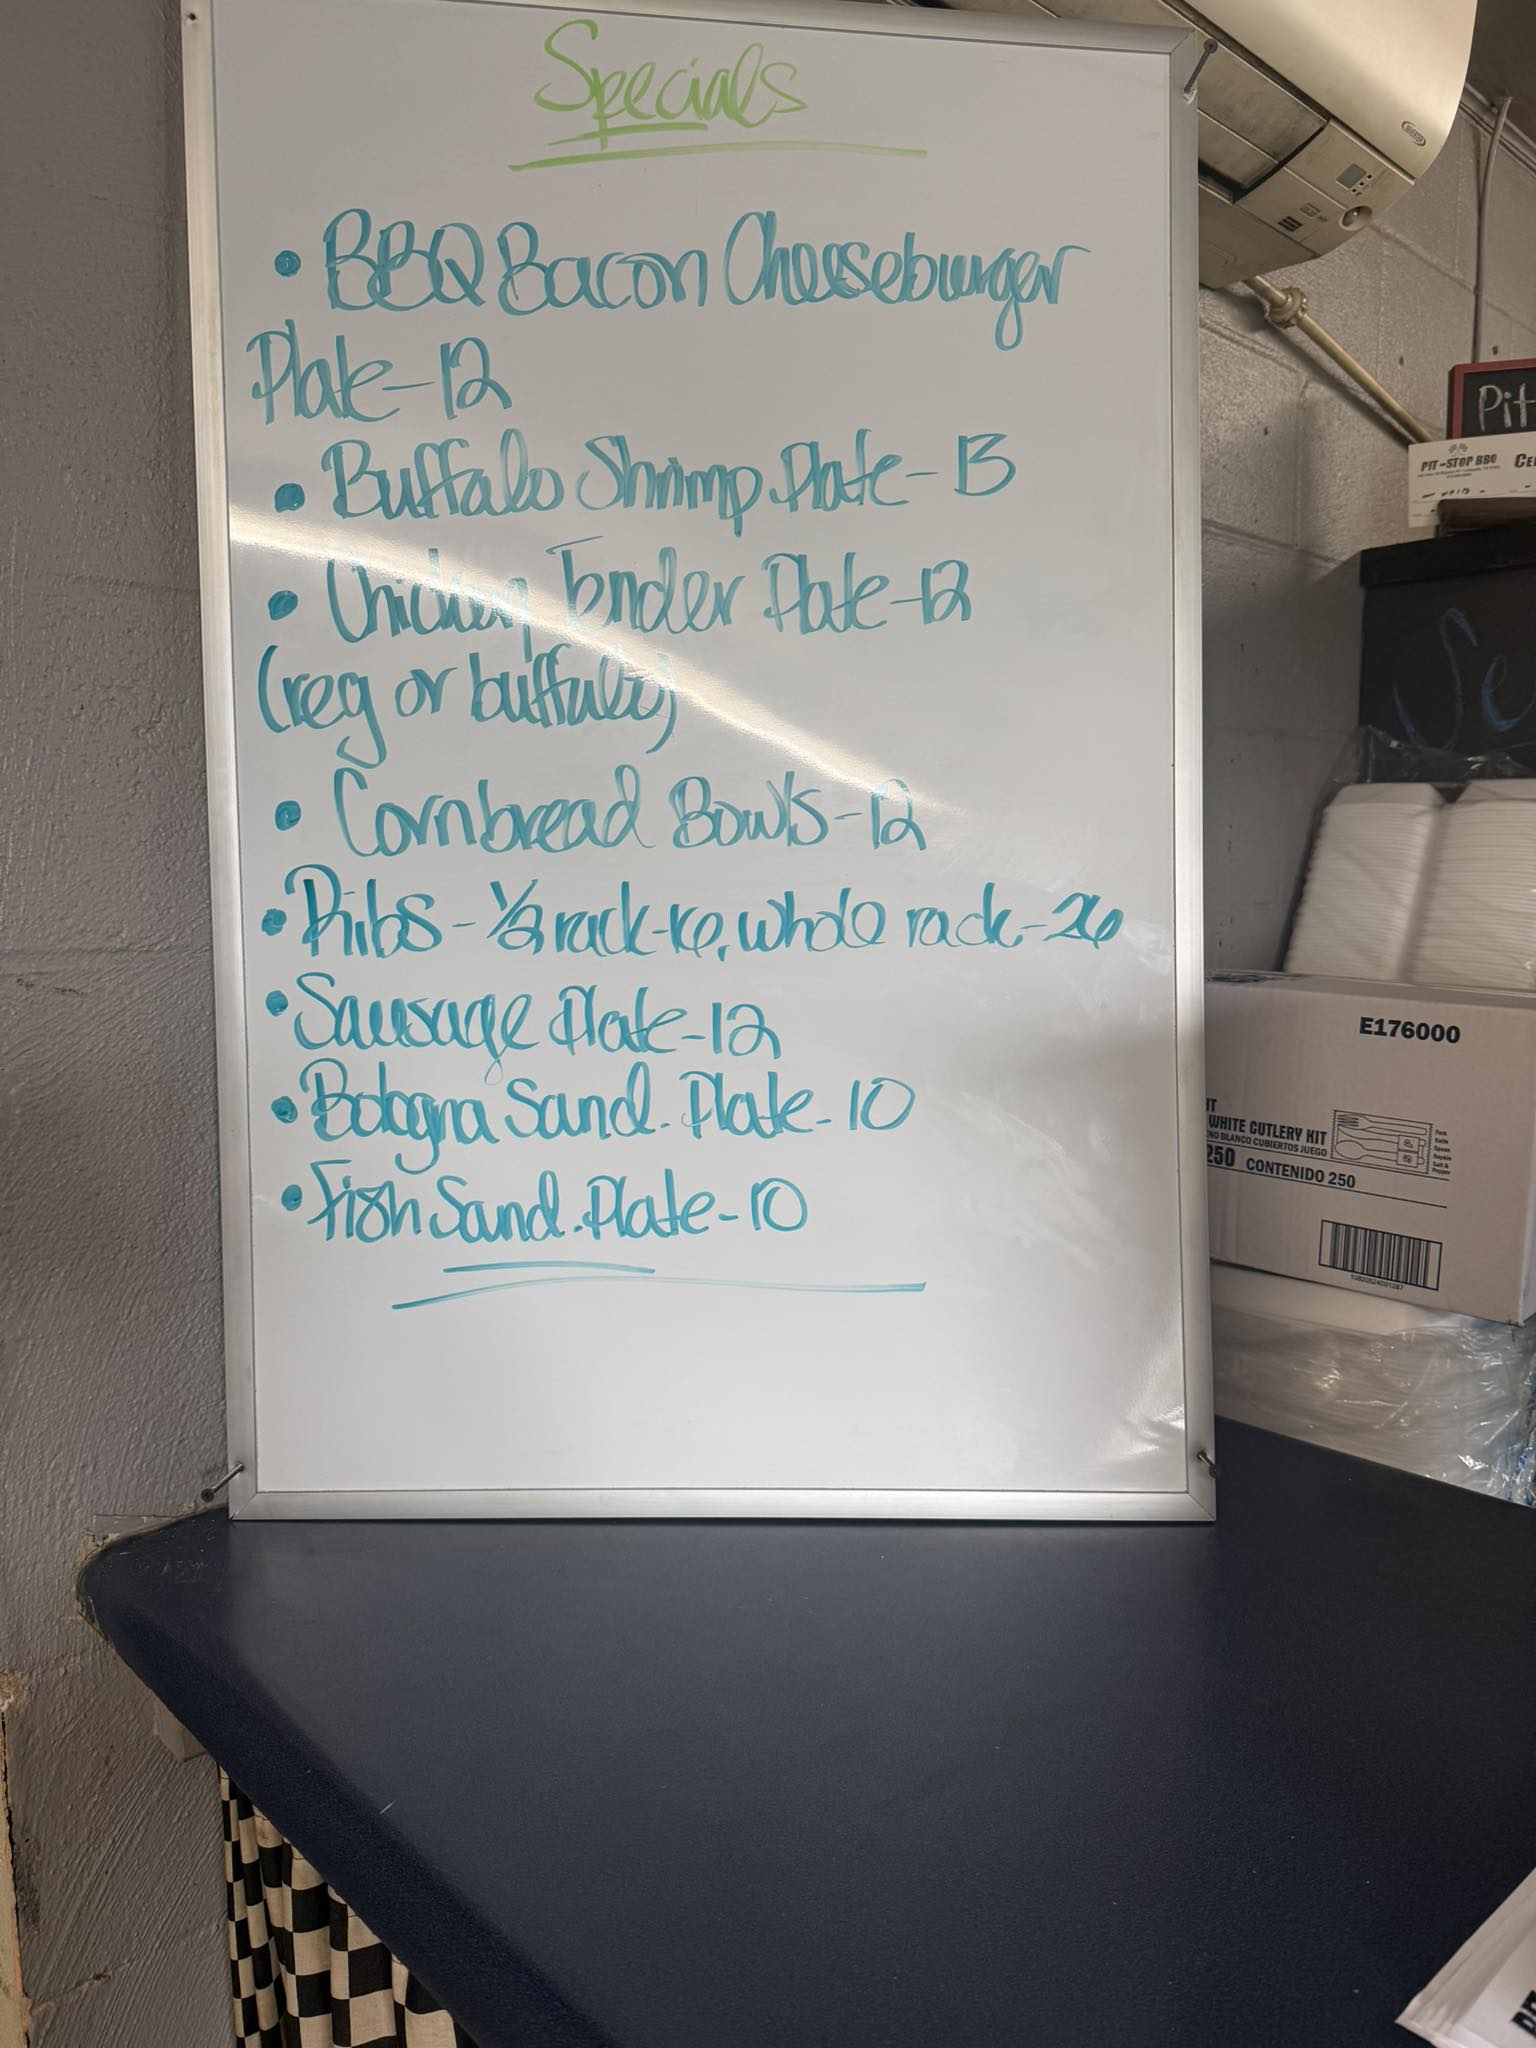 Specials
• BBQ Bacon Cheeseburger
Plate-12
• Buffalo Shrimp Plate-13
• Chicken Tender Plate-12
(reg or buffalo)
• Cornbread Bowls-12
• Ribs-1/2 rack-16, whole rack-26
• Sausage Plate-12
• Bologna Sand. Plate-10
• Fish Sand. Plate-10
INVERTER
Pit
PIT-STOP BBQ
Se
E176000
WHITE CUTLERY KIT
BLANCO CUBIERTOS JUEGO
250 CONTENIDO 250
Fork
Knife
Spoon
Napkin
Salt &
Pepper